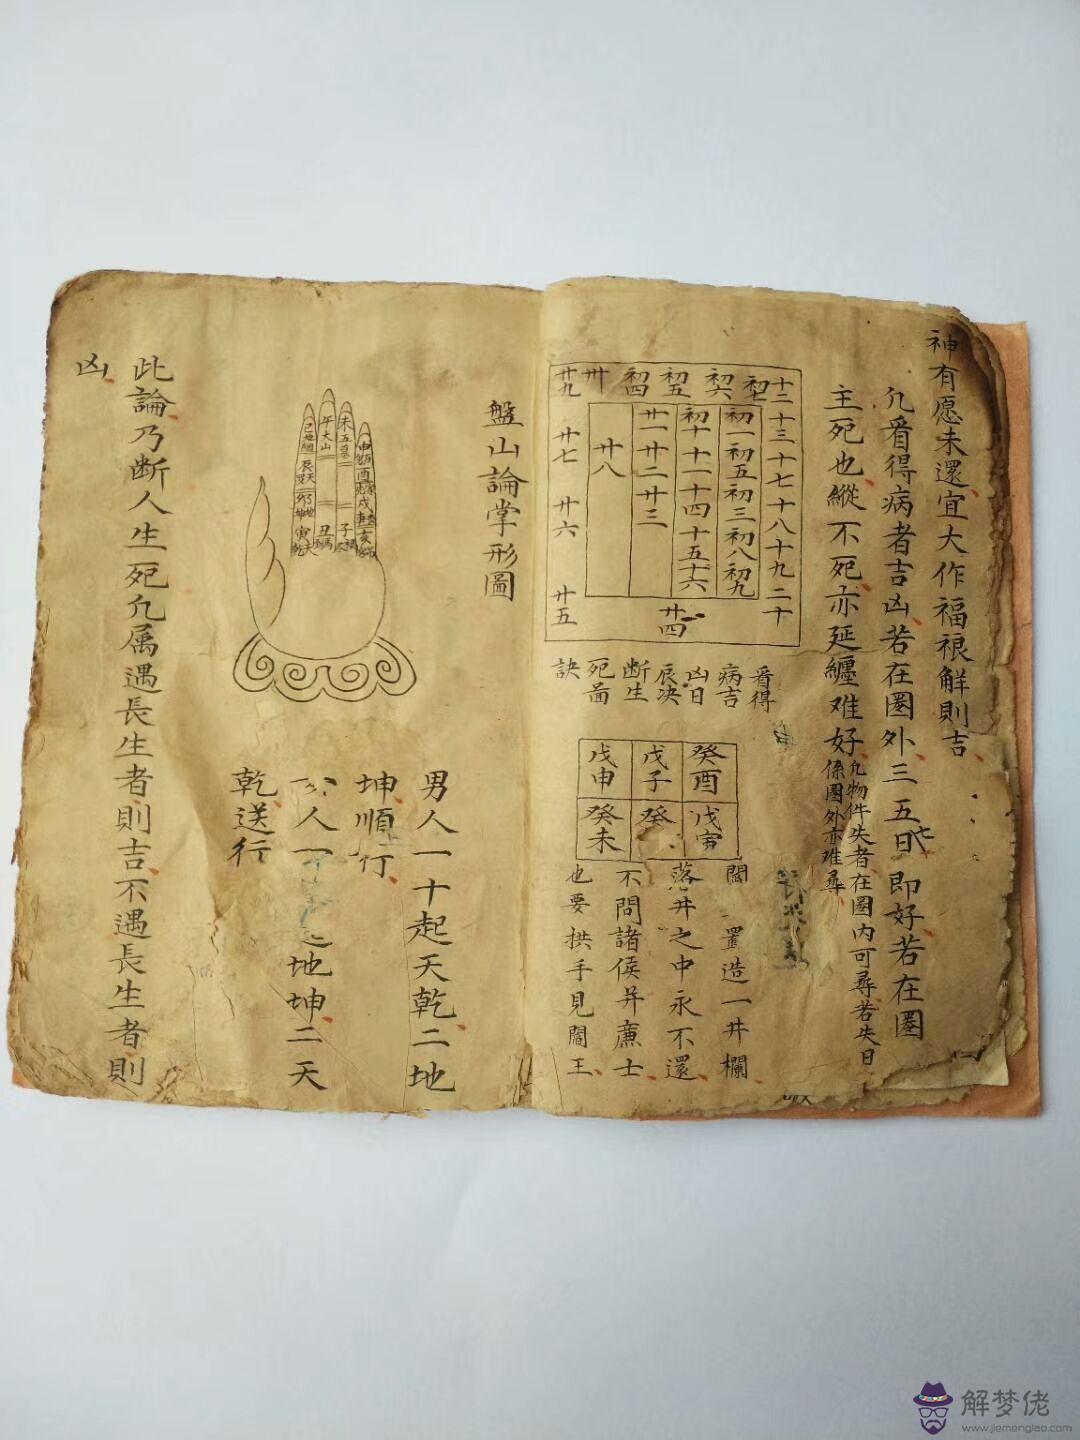 神有愿未還宜大作福禄解則吉
凡看得病者吉凶若在圏外三五七日即好若在圏
主死也縱不死亦延纏难好
凡物件失者在圏内可尋若失日
係圏外亦难尋
十二十三十七十八十九二十
初七
初六
初五
初四
卅
廿九
初一初五初三初八初九
初十十一十四十五十六
廿一廿二廿三
廿八
廿七
廿六
廿五
廿四
看得
病吉
凶日
辰决
断生
死面
訣
癸酉
戊寅
戊子
癸
戊申
癸未
閻
置造一井欄
落井之中永不還
不問諸侯并廉士
也要拱手見閻王
盤山論掌形圖
未五墓
午大山
子
丑
寅
申
酉
戌
亥
辰
男人一十起天乾二地
坤順行
人一
地坤二天
乾送行
此論乃断人生死凡属遇長生者則吉不遇長生者則
凶
解梦佬
www.jiemenglao.com